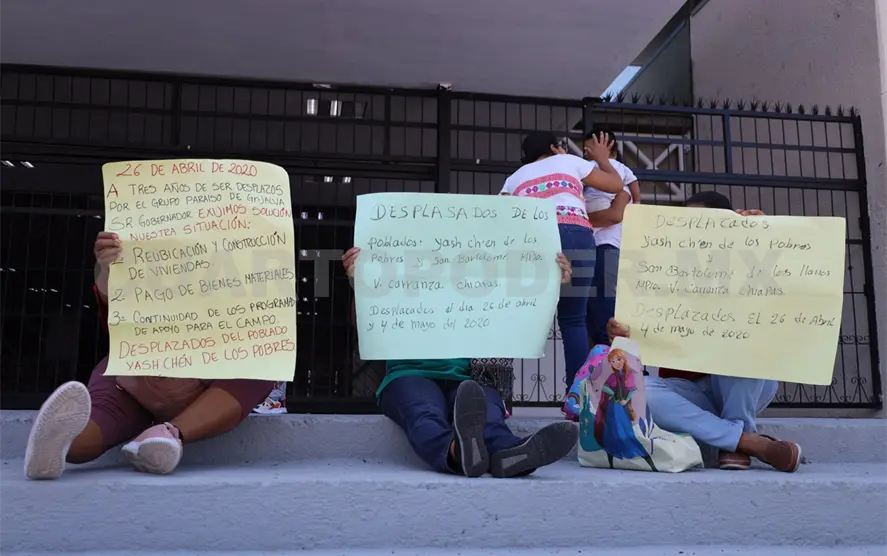 26 DE ABRIL DE 2020
A TRES AÑOS DE SER DESPLAZOS
POR EL GRUPO PARAISO DE GRIJALVA
SR GOBERNADOR EXIJIMOS SOLUCIÓN
NUESTRA SITUACIÓN:
1- REUBICACIÓN Y CONSTRUCCIÓN
DE VIVIENDAS.
2- PAGO DE BIENES MATERIALES
3= CONTINUIDAD DE LOS PROGRAMA
DE APOYO PARA EL CAMPO.
DESPLAZADOS DEL POBLADO
YASH CHÉN DE LOS POBRES
DESPLASADOS DE LOS
poblados: yash ch'en de los
Pobres y san Bartolome
V. Carranza, chiapas.
Desplacados el dia 26 de abril
y 4 de mayo del 2020
DESPLAZADOS
yash ch'en de los Pobres
y
san Bartolome de los llanos
MPIO V. Carranza Chiapas.
Desplazados EL 26 de Abril
4 de mayo de 2020
ALERTOPODER.MX